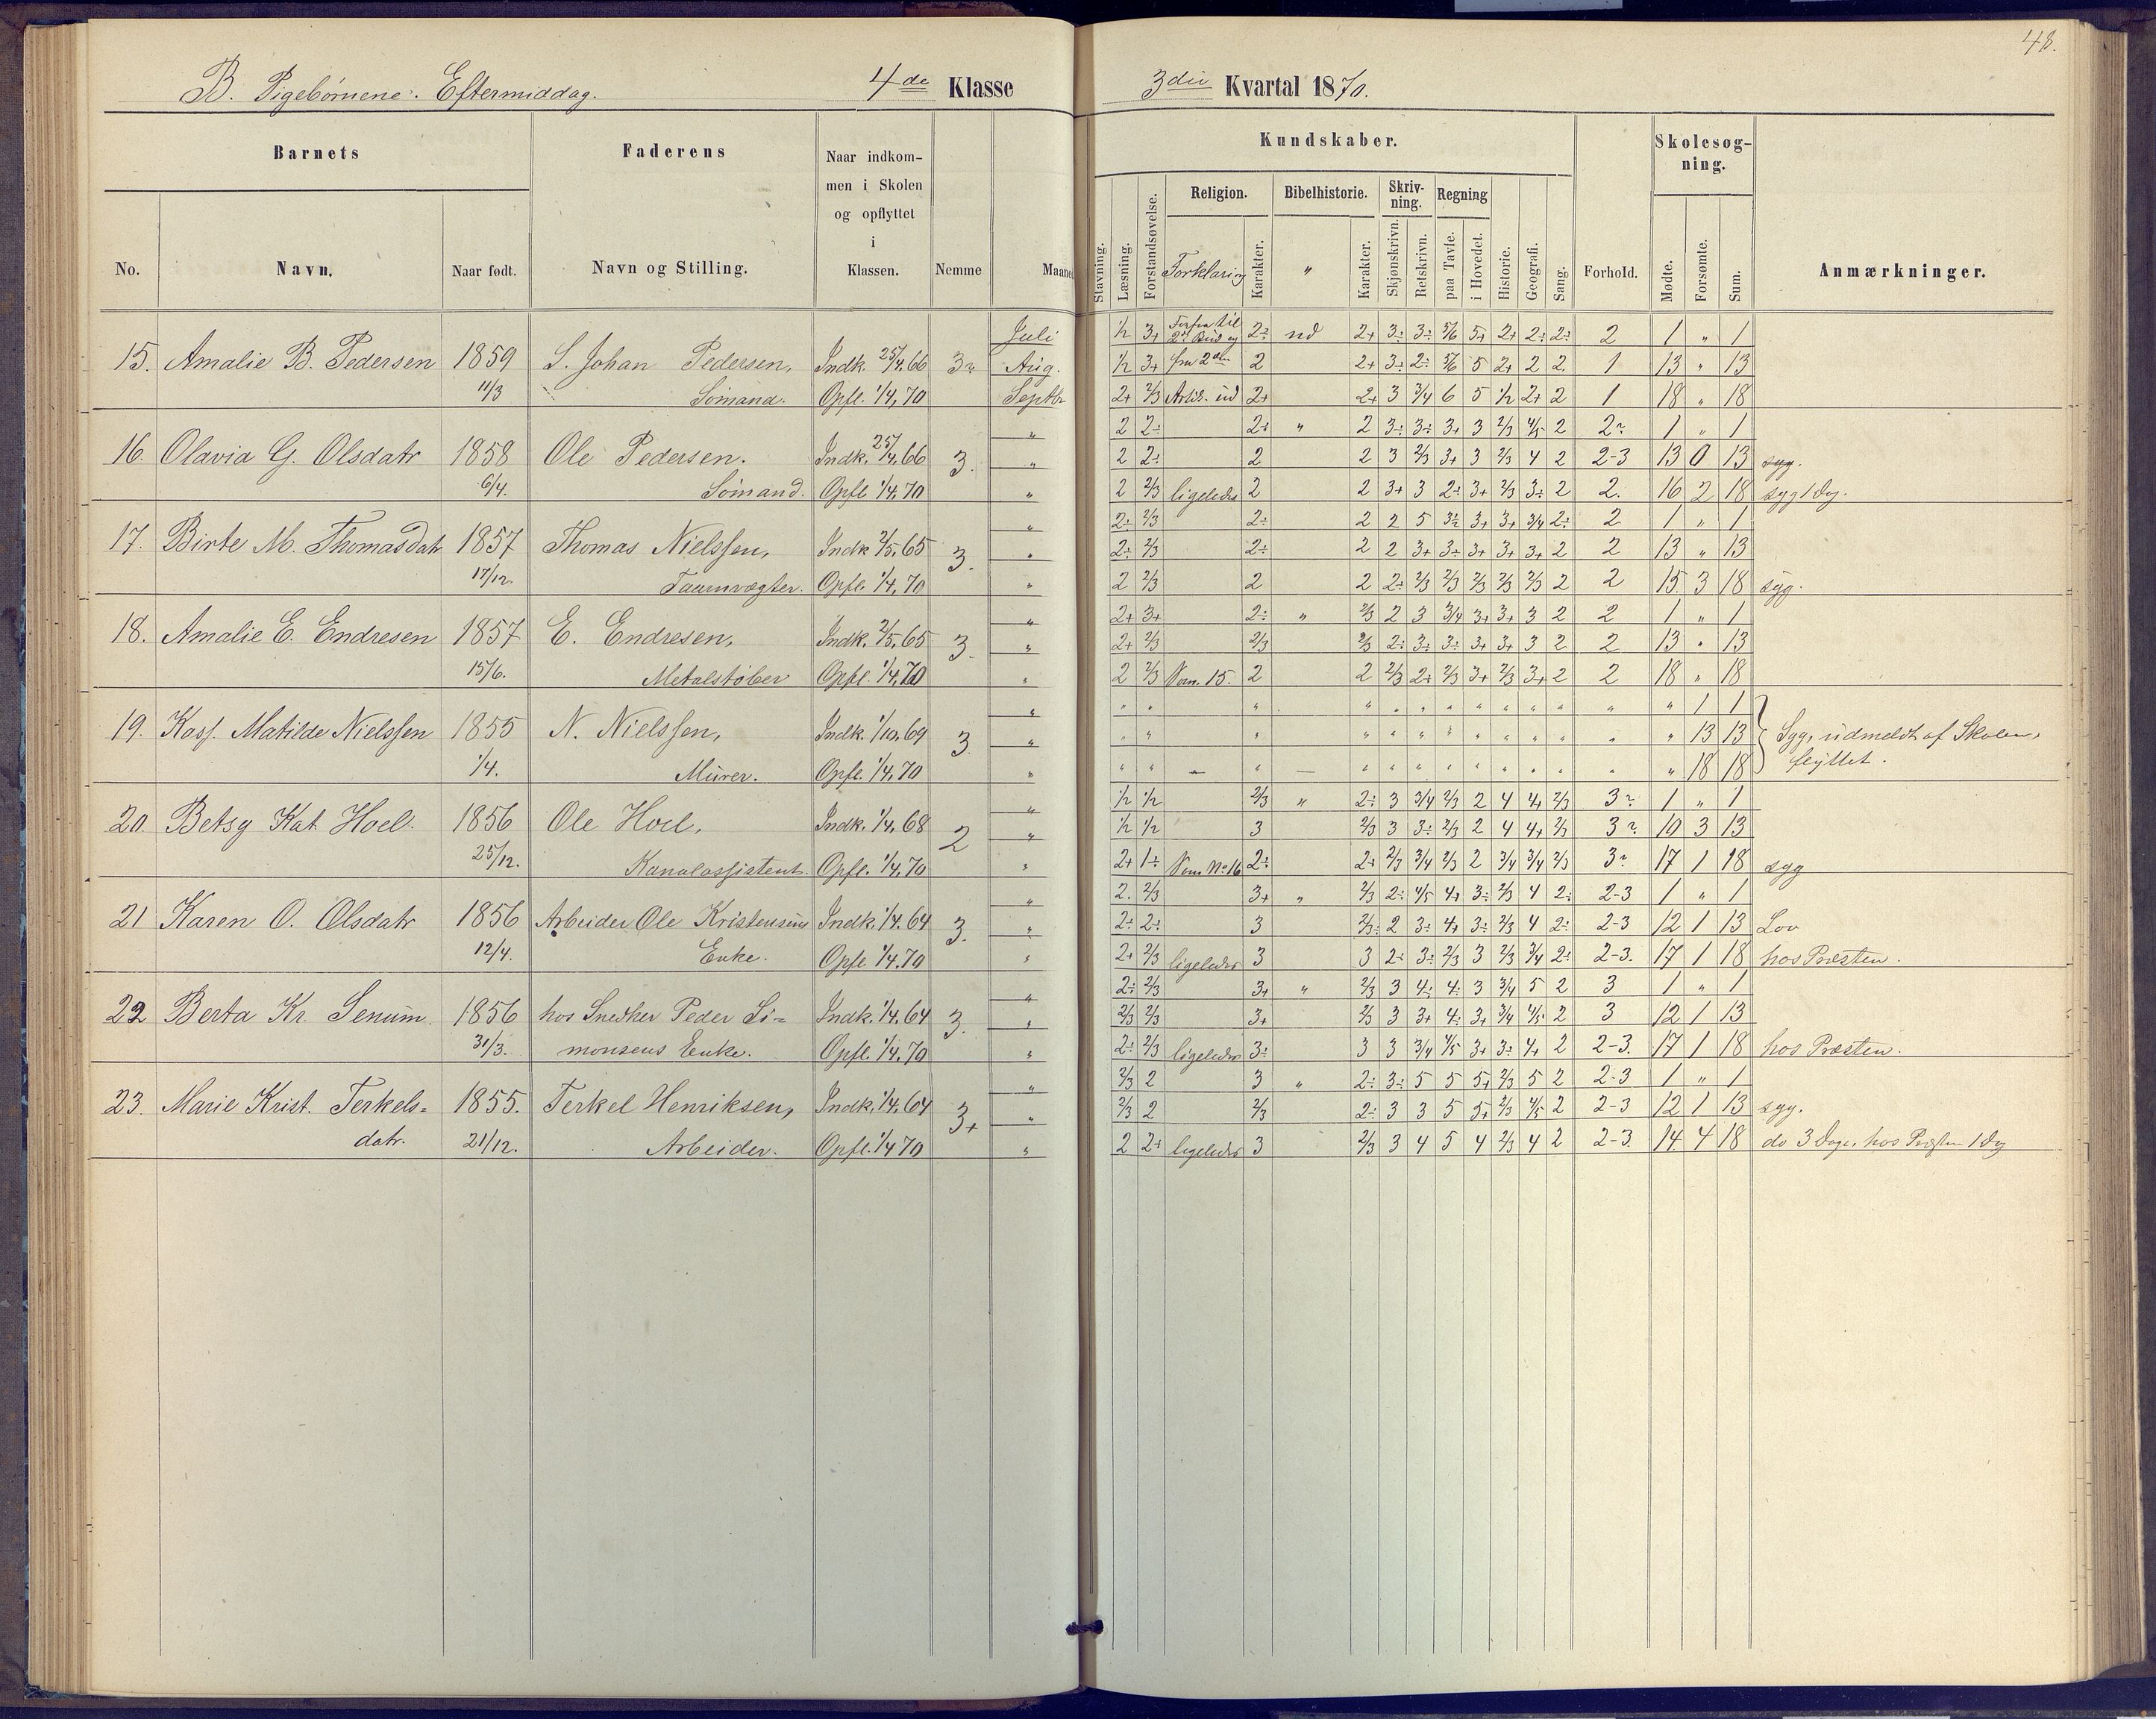 48.
B. Pigebørnene. Eftermiddag. 4de Klasse
3die Kvartal 1870.
Barnets
Faderens
Naar indkom-
men i Skolen
og opflyttet
i
Klassen.
No.
Navn.
Naar født.
Navn og Stilling.
Nemme
Maaned
Kundskaber.
Skolesøg-
ning.
Religion.
Bibelhistorie.
Skriv-
ning.
Regning
Stavning.
Læsning.
Forstandsøvelse.
Forklaring
Karakter.
"
Karakter.
Skjønskrivn.
Retskrivn.
paa Tavle.
i Hovedet.
Historie.
Geografi.
Sang.
Forhold.
Mødte.
Forsømte.
Sum.
Anmærkninger.
Juli 1/2 3+ 2÷ ud 2+ 3÷ 3÷ 5/6 5+ 2+ 2÷ 2÷ 2 1 " 1
15. Amalie B. Pedersen 1859 S. Johan Pedersen, Indk. 25/4.66 Aug. 1/2 3+ 2 2+ 3÷ 2÷ 5/6 5 2+ 2 2 1 13 " 13
11/3 Sømand. Opfl. 1/4.70 Septbr 2+ 2/3 2+ 2+ 3 3/4 6 5 1/2 2+ 2 1 18 " 18
" 2 2÷ 2÷ " 2 3÷ 3÷ 3+ 3 2/3 4/5 2 2? 1 " 1
16. Olavia G. Olsdatr 1858 Ole Pedersen. Indk. 25/4.66 3. " 2 2÷ 2 2 3 2/3 3+ 3 2/3 4 2 2-3 13 0 13 syg.
6/4. Sømand. Opfl. 1/4.70 " 2 2/3 ligeledes 2 2 3+ 3 2÷ 3+ 2/3 3÷ 2 2. 16 2 18 syg 1 Dg.
" 2÷ 2/3 2÷ 2 2 5 3½ 3+ 3+ 3/4 2÷ 2 1 " 1
17. Birte M. Thomasdatr 1857 Thomas Nielssen, Indk 2/5.65 3. " 2÷ 2/3 2÷ 2 2 3+ 3÷ 3+ 3+ 3+ 2 2 13 " 13
17/12. Taarnvægter. Opfl. 1/4.70 " 2 2/3 2 2 2÷ 2/3 2/3 2/3 2/3 2/3 2 2 15. 3 18 syg.
" 2+ 3+ 2÷ " 2/3 2 3 3/4 3+ 3+ 3 2 2 1 " 1
18. Amalie E. Endresen 1857 E. Endresen, Indk. 2/5.65 3. " 2+ 2/3 2/3 2/3 2÷ 3÷ 3÷ 3+ 3+ 3 2 2 13 " 13
15/6. Metalstøber Opfl. 1/4.70 " 2 2/3 Som. 15. 2 2 2/3 2÷ 2/3 3+ 2/3 3+ 2 2 18 " 18
" " " " " " " " " " " " " " " 1 1
19. Kass. Matilde Nielssen 1855 N. Nielssen, Indk. 1/10.69 3. " " " " " " " " " " " " " " " 13 13 Syg, udmeldt af Skolen,
1/4. Murer. Opfl. 1/4.70 " " " " " " " " " " " " " " " 18 18 flyttet.
" 1/2 1/2 2/3 " 2÷ 3 3/4 2/3 2 4 4+ 2/3 3? 1 " 1
20. Betsy Kat Hoel. 1856 Ole Hoel, Indk. 1/4.68 2 " 1/2 1/2 3 2/3 3 3÷ 2/3 2 4 4+ 2/3 3? 10 3 13
25/12. Kanalassistent. Opfl. 1/4.70 " 2+ 1÷ Som No 16 2÷ 2+ 2/3 3/4 2/3 2 3/4 3/4 2/3 3? 17 1 18 syg
" 2. 2/3 3+ " 2/3 2÷ 4/5 4+ 3÷ 2/3 4 2÷ 2-3 1 " 1
21 Karen O. Olsdatr 1856 Arbeider Ole Kristensens Indk. 1/4.64 3. " 2÷ 2÷ 3 2/3÷ 2 3÷ 4+ 3÷ 2/3 4 2÷ 2-3 12 1 13 Lov
12/4. Enke. Opfl. 1/4.70 " 2+ 2/3 ligeledes 3 3 2÷ 3÷ 2/3 3 2/3 3/4 2÷ 2-3. 17 1 18 hos Præsten.
" 2÷ 2/3 3+ " 2/3 3 4÷ 4÷ 3 3/4 5 2 3 1 " 1
22 Berta Kr. Senum. 1856 hos Snedker Peder Si= Indk. 1/4.64 3. " 2/3 2/3 3+ 2/3 3 3+ 4÷ 3+ 3/4 4/5 2 3 12 1 13
31/3. monsens Enke. Opfl. 1/4.70 " 2÷ 2/3 ligeledes 3÷ 3 3 3/4 4/5 3+ 3÷ 4+ 2 2-3. 17 1 18 hos Præsten.
" 2/3 2 3 " 2÷ 3÷ 5 5 5+ 2/3 5 2 2-3 1 " 1
23. Marie Krist. Terkels= 1855. Terkel Henriksen, Indk. 1/4.64 3+ " 2/3 2 2/3 2÷ 3 3 5 5+ 2/3 4/5 2 2-3 12 1 13 syg.
datr. 21/12. Arbeider. Opfl. 1/4 70 " 2 2+ ligeledes 3 2/3 3 4 5 4 2/3 4 2 2-3. 14. 4 18 do 3 Dage, hos Præsten 1 Dg